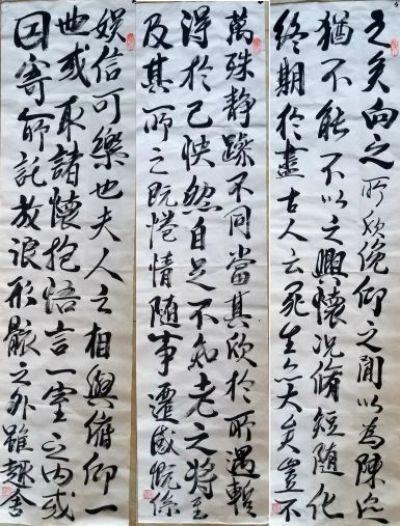 娱信可樂也夫人之相與俯仰一
世或取諸懷抱悟言一室之内或
因寄所託放浪形骸之外雖趣舍
萬殊静躁不同當其欣於所遇暫
得於己怏然自足不知老之將至
及其所之既惓情隨事遷感慨係
之矣向之所欣俛仰之閒以為陳迹
猶不能不以之興懷況脩短隨化
終期於盡古人云死生亦大矣豈不